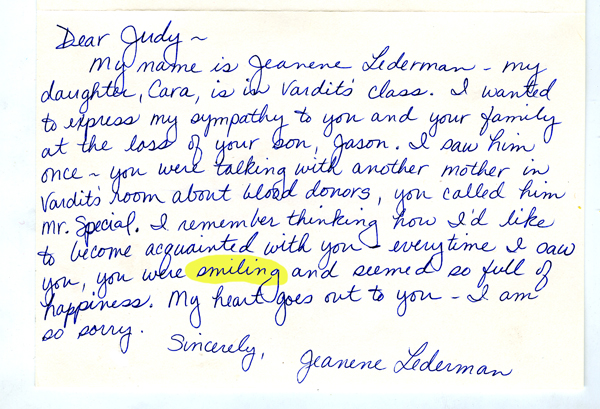 Dear Judy ~
My name is Jeanene Lederman - my
daughter, Cara, is in Vardit's class. I wanted
to express my sympathy to you and your family
at the loss of your son, Jason. I saw him
once ~ you were talking with another mother in
Vardit's room about blood donors, you called him
Mr. Special. I remember thinking how I'd like
to become acquainted with you - everytime I saw
you, you were smiling and seemed so full of
happiness. My heart goes out to you - I am
so sorry.
Sincerely,
Jeanene Lederman